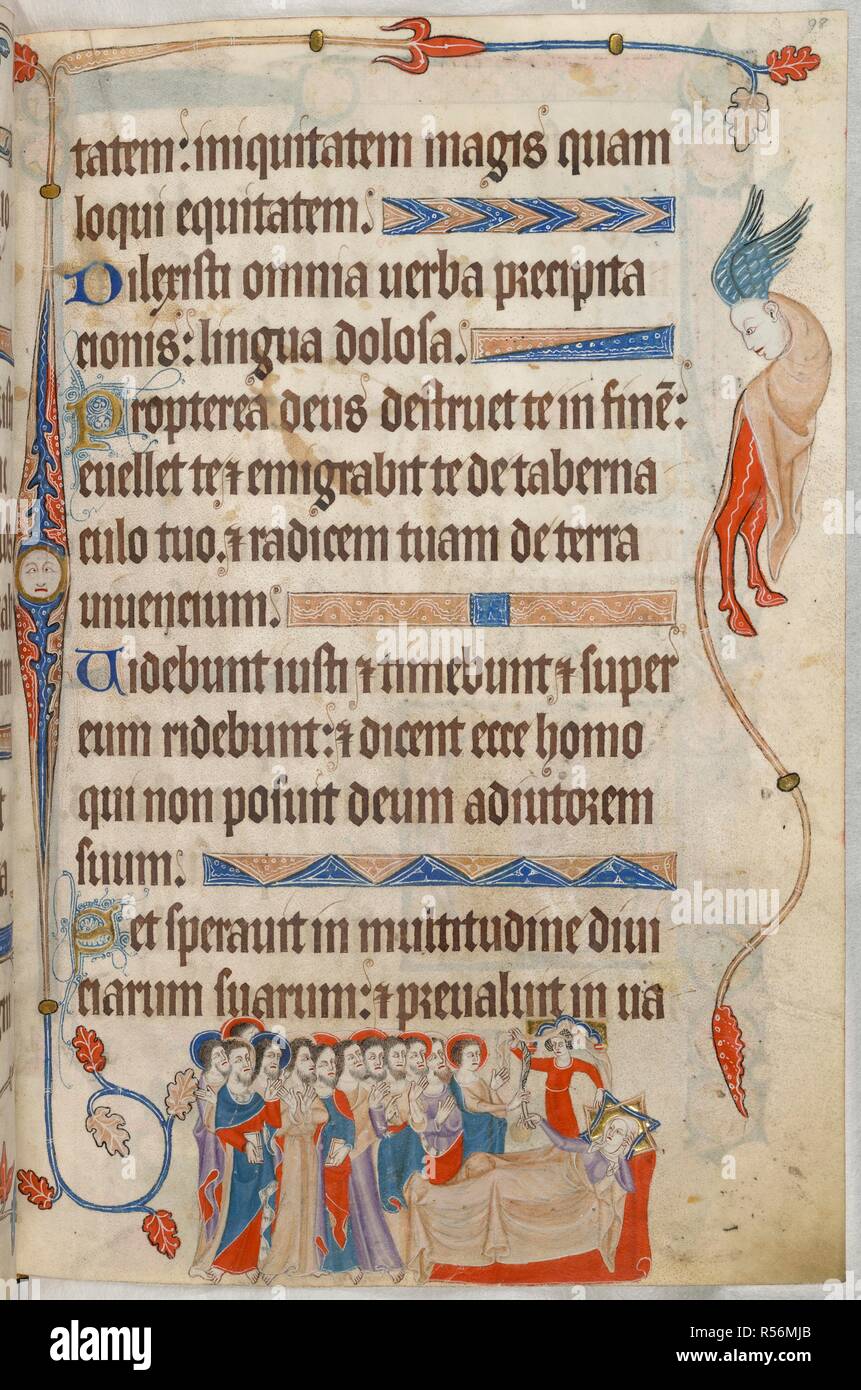 98
tatem: iniquitatem magis quam
loqui equitatem.
Dilexisti omnia uerba precipita
cionis: lingua dolosa.
Propterea deus destruet te in finē:
euellet te ⁊ emigrabit te de taberna
culo tuo. ⁊ radicem tuam de terra
uiuencium.
Uidebunt iusti ⁊ timebunt ⁊ super
eum ridebunt: ⁊ dicent ecce homo
qui non posuit deum adiutorem
suum.
Set sperauit in multitudine diui
ciarum suarum: ⁊ preualuit in ua
alamy
Image ID: R56MJB
www.alamy.com